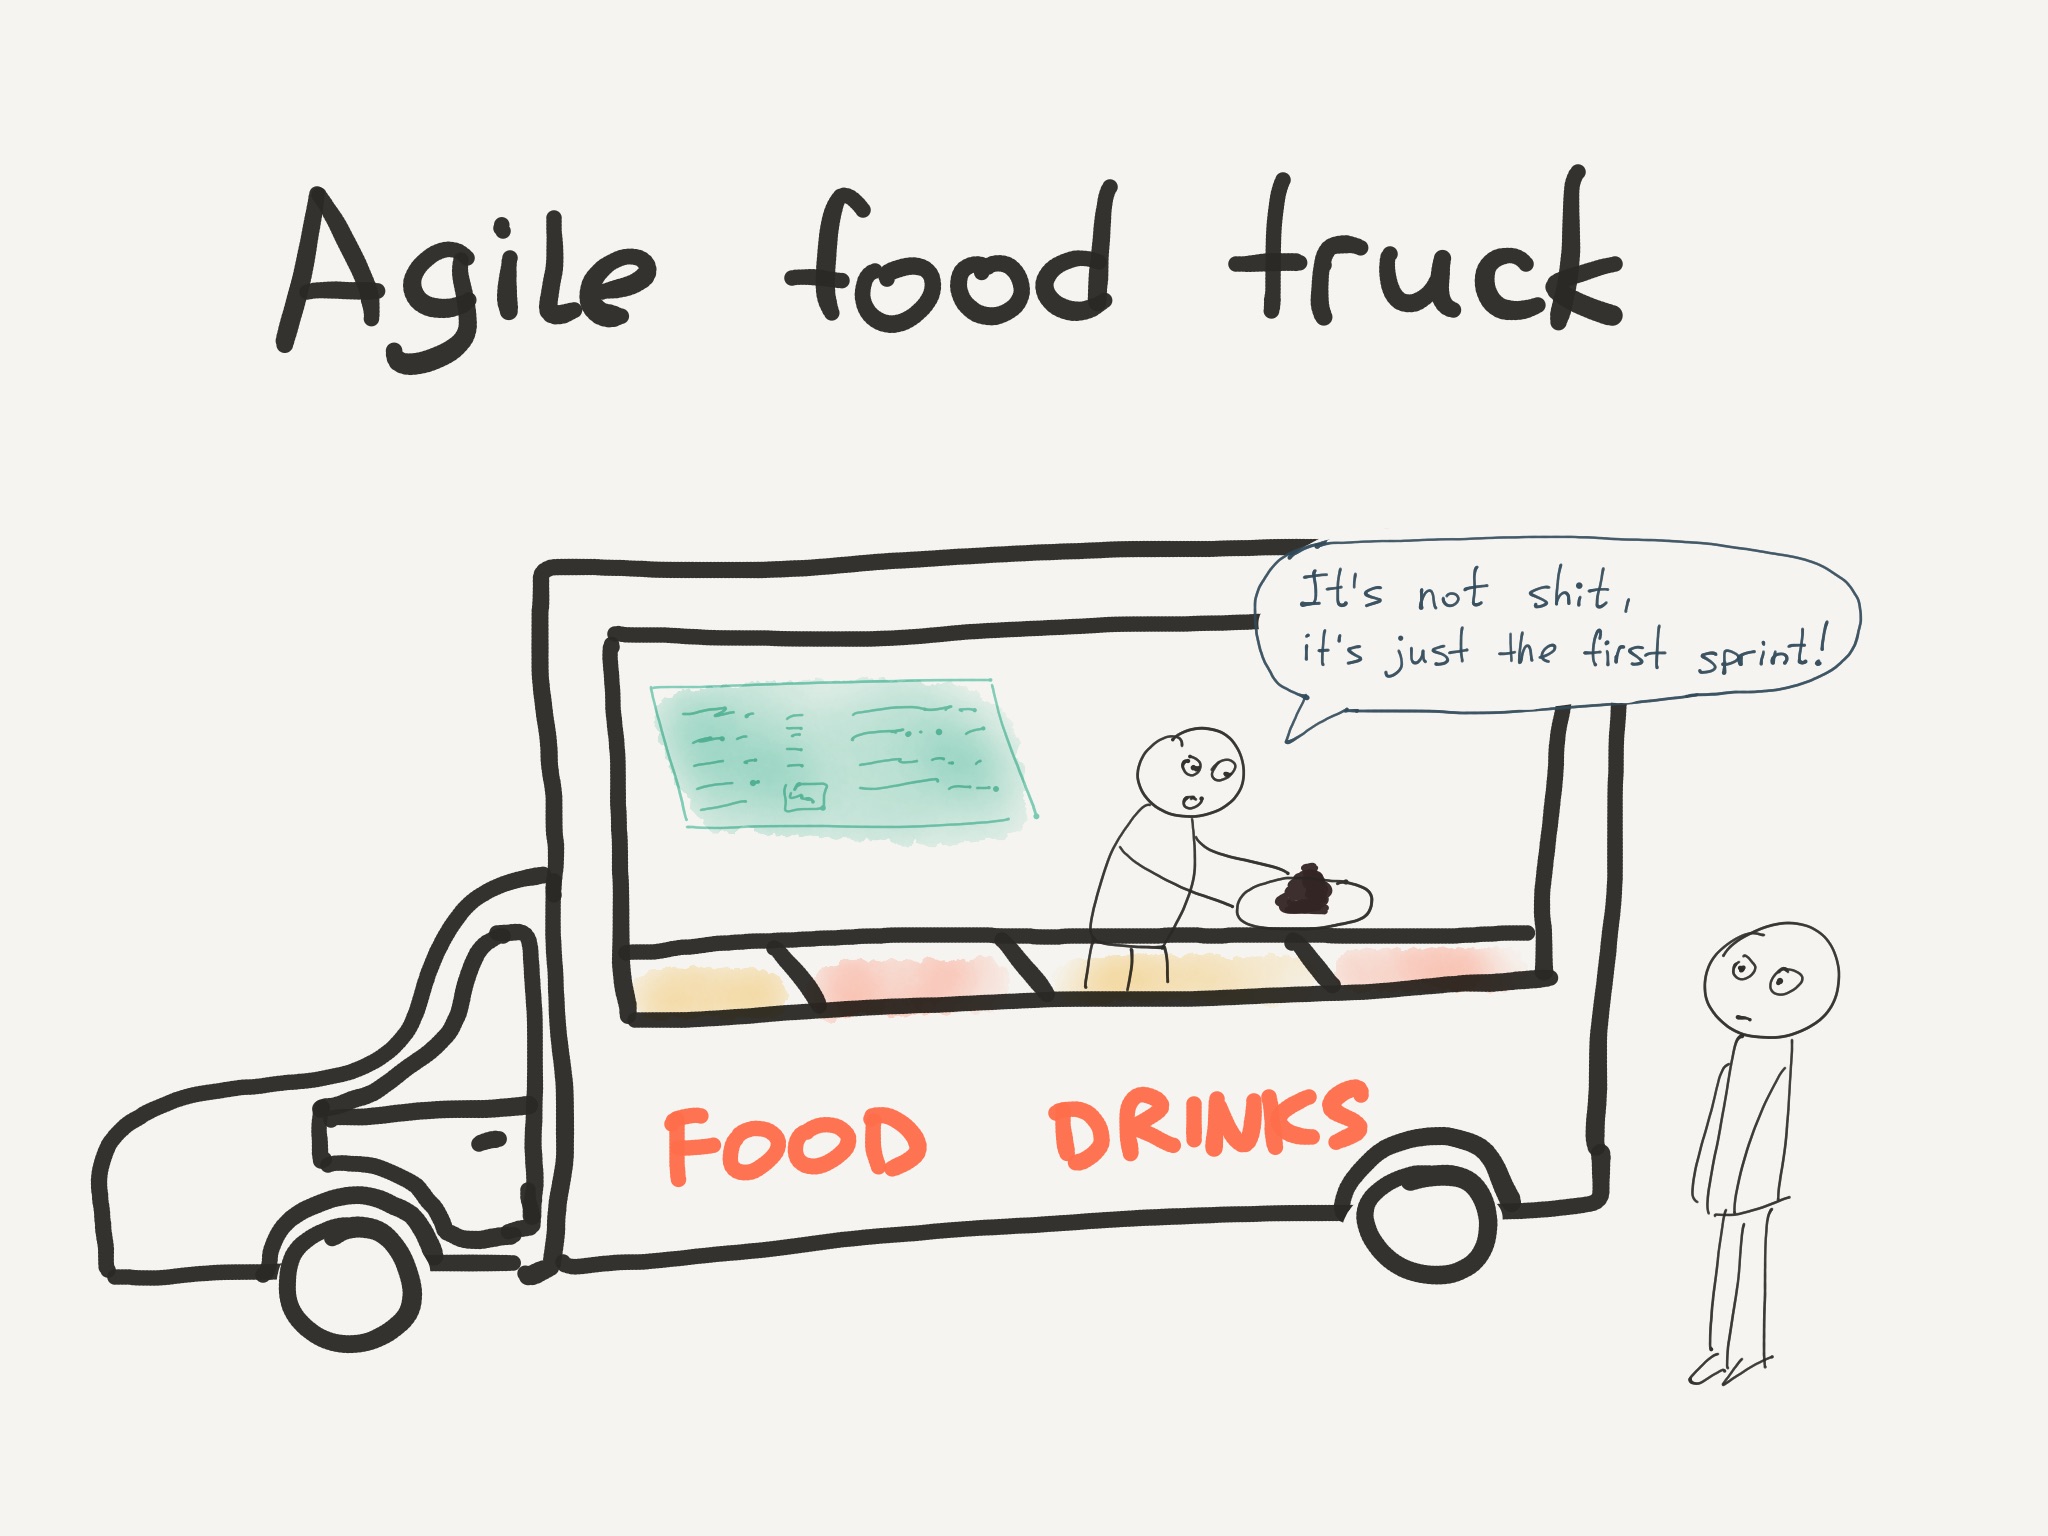 Agile food truck
It's not shit,
it's just the first sprint!
FOOD DRINKS